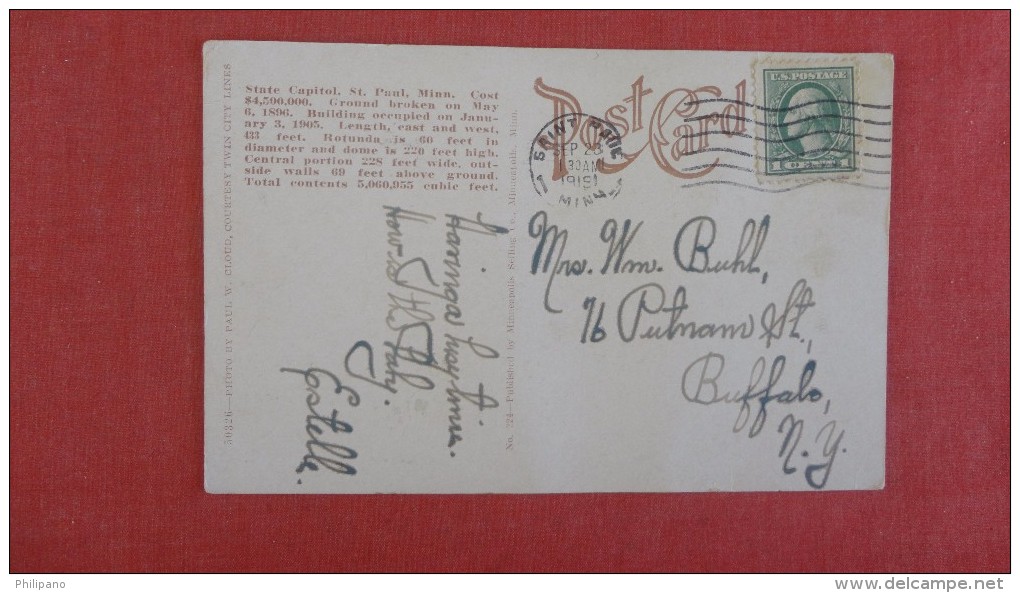 State Capitol, St. Paul, Minn. Cost
$4,500,000. Ground broken on May
6, 1896. Building occupied on Janu-
ary 3, 1905. Length, east and west,
433 feet. Rotunda is 60 feet in
diameter and dome is 220 feet high.
Central portion 228 feet wide, out-
side walls 69 feet above ground.
Total contents 5,060,955 cubic feet.
50326—PHOTO BY PAUL W. CLOUD, COURTESY TWIN CITY LINES
Having a busy time.
How is
Baby.
Estelle.
No. 224—Published by Minneapolis Selling Co., Minneapolis, Minn.
Post Card
SAINT PAUL
SEP 23
1 30 AM
191
MINN.
U.S. POSTAGE
1 1
Mrs. Wm. Buhl,
76 Putnam St.,
Buffalo,
N.Y.
Philipano
www.delcampe.net